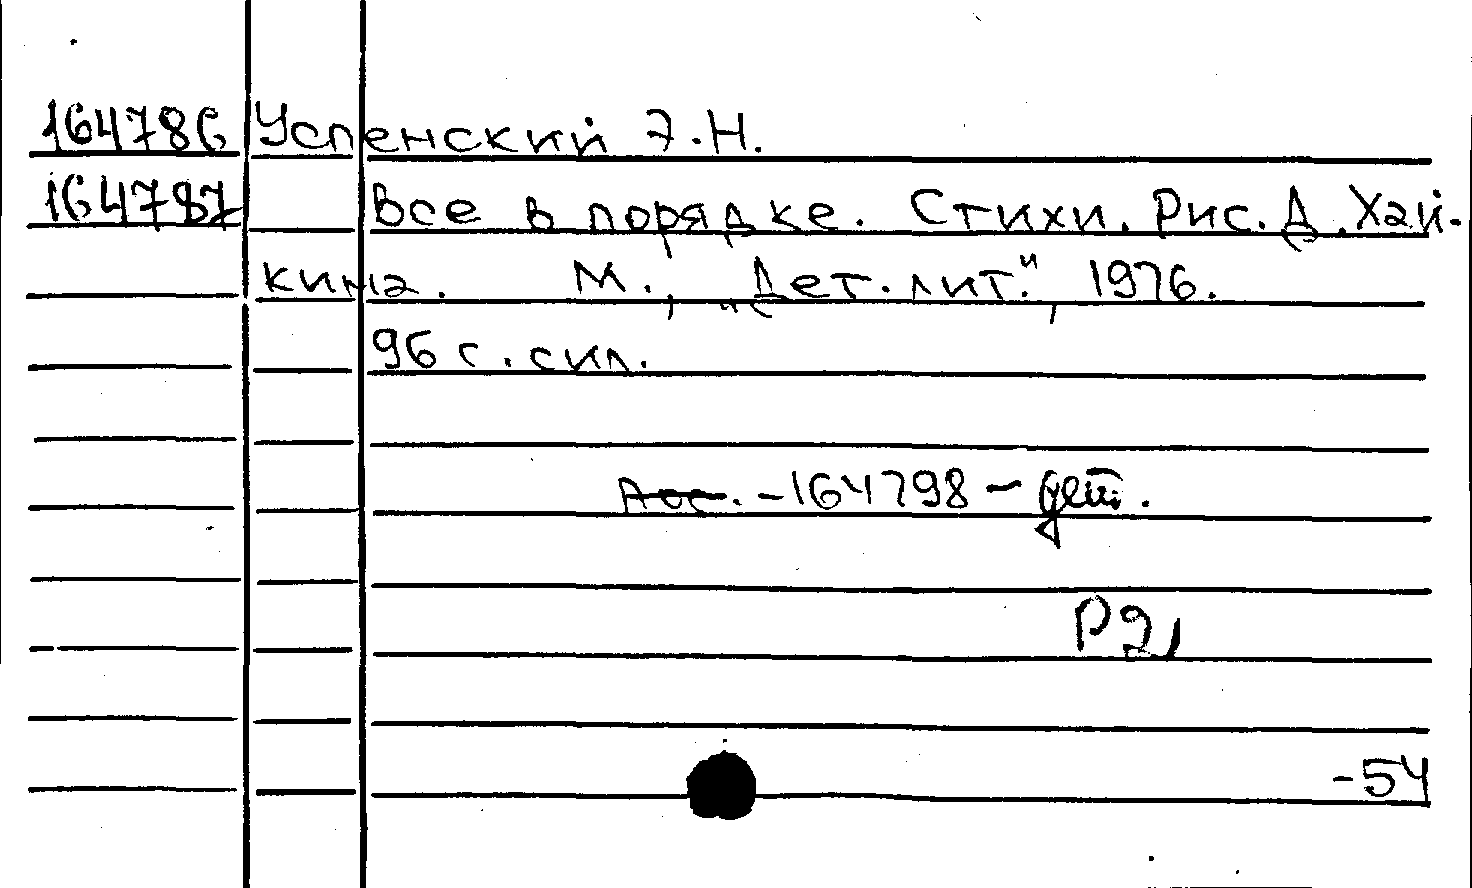 164786 Успенский Э.Н.
164787 Все в порядке. Стихи. Рис. Д. Хай-
кина. М., „Дет. лит.", 1976.
96 с. с ил.
-164798 - дет.
Р2,
-54